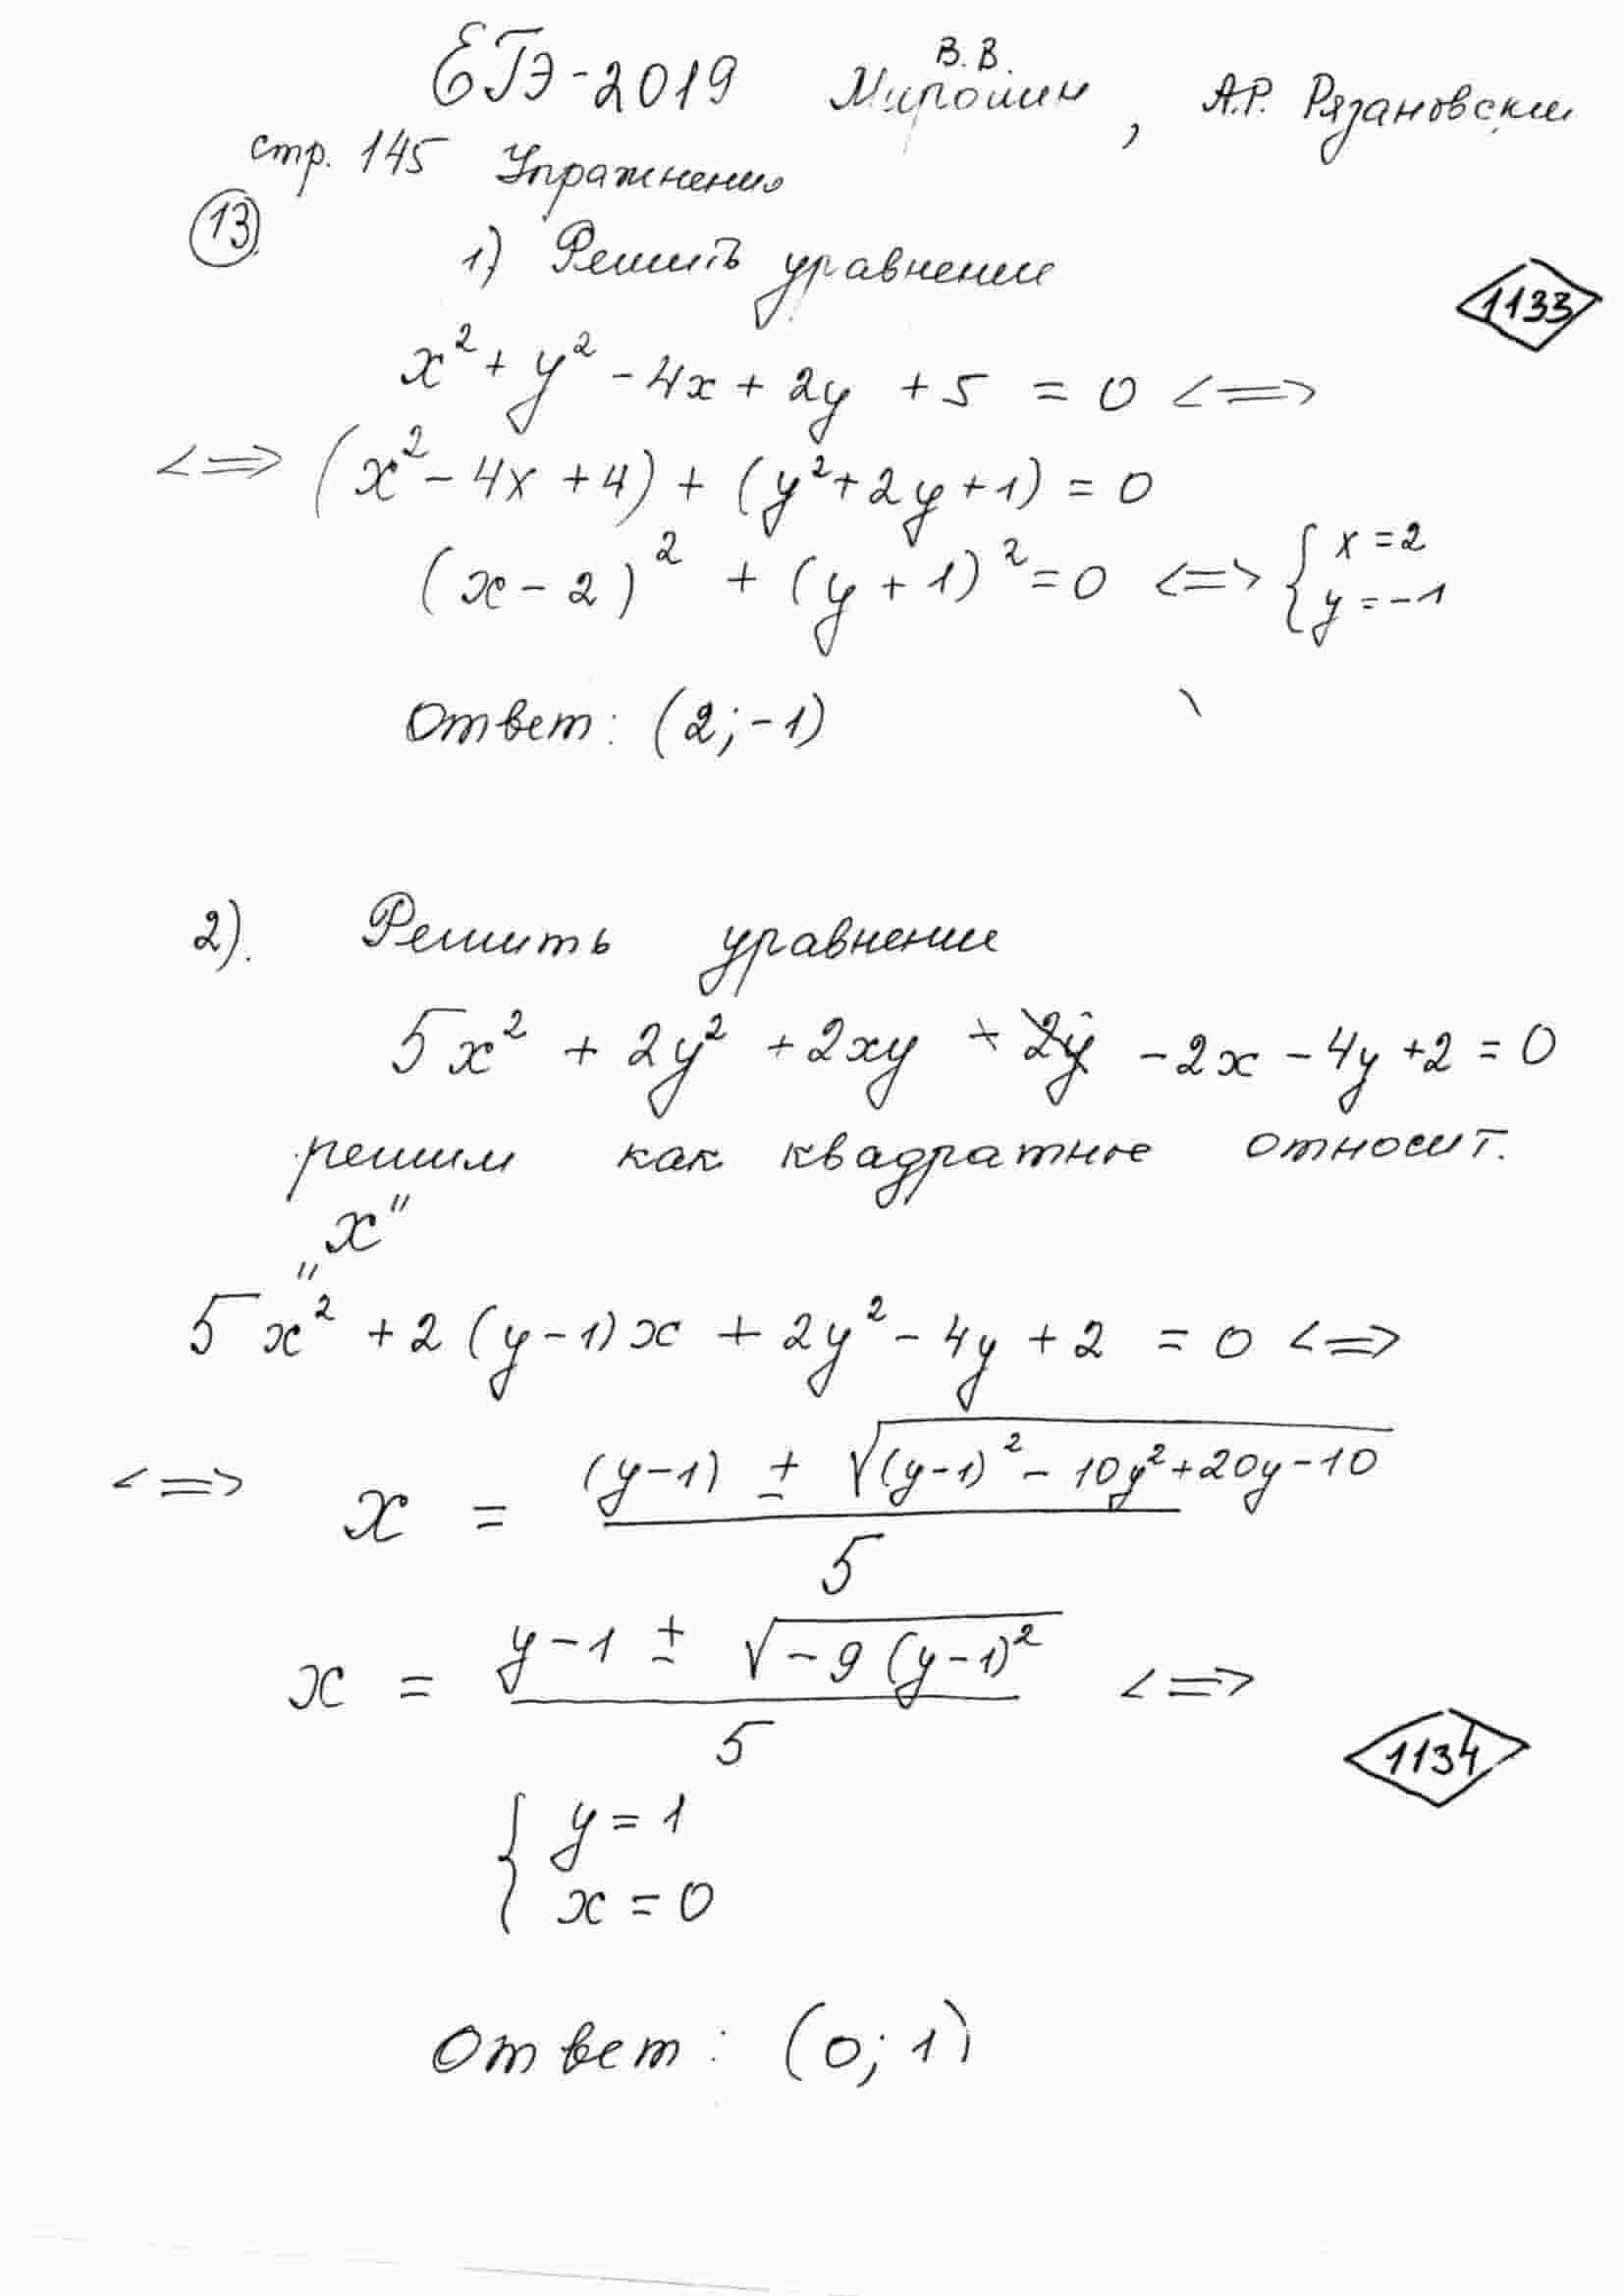 ЕГЭ-2019 В.В. Мирошин, А.Р. Рязановский
стр. 145 Упражнения
13. 1) Решить уравнение
1133
x² + y² - 4x + 2y + 5 = 0 <=>
<=> (x² - 4x + 4) + (y² + 2y + 1) = 0
(x - 2)² + (y + 1)² = 0 <=> { x = 2
y = -1
Ответ: (2; -1)
2). Решить уравнение
5x² + 2y² + 2xy + 2y - 2x - 4y + 2 = 0
решим как квадратное относит.
"x"
5x² + 2(y-1)x + 2y² - 4y + 2 = 0 <=>
<=> x = ((y-1) ± √((y-1)² - 10y² + 20y - 10)) / 5
x = (y-1 ± √(-9(y-1)²)) / 5 <=>
1134
{ y = 1
x = 0
Ответ: (0; 1)